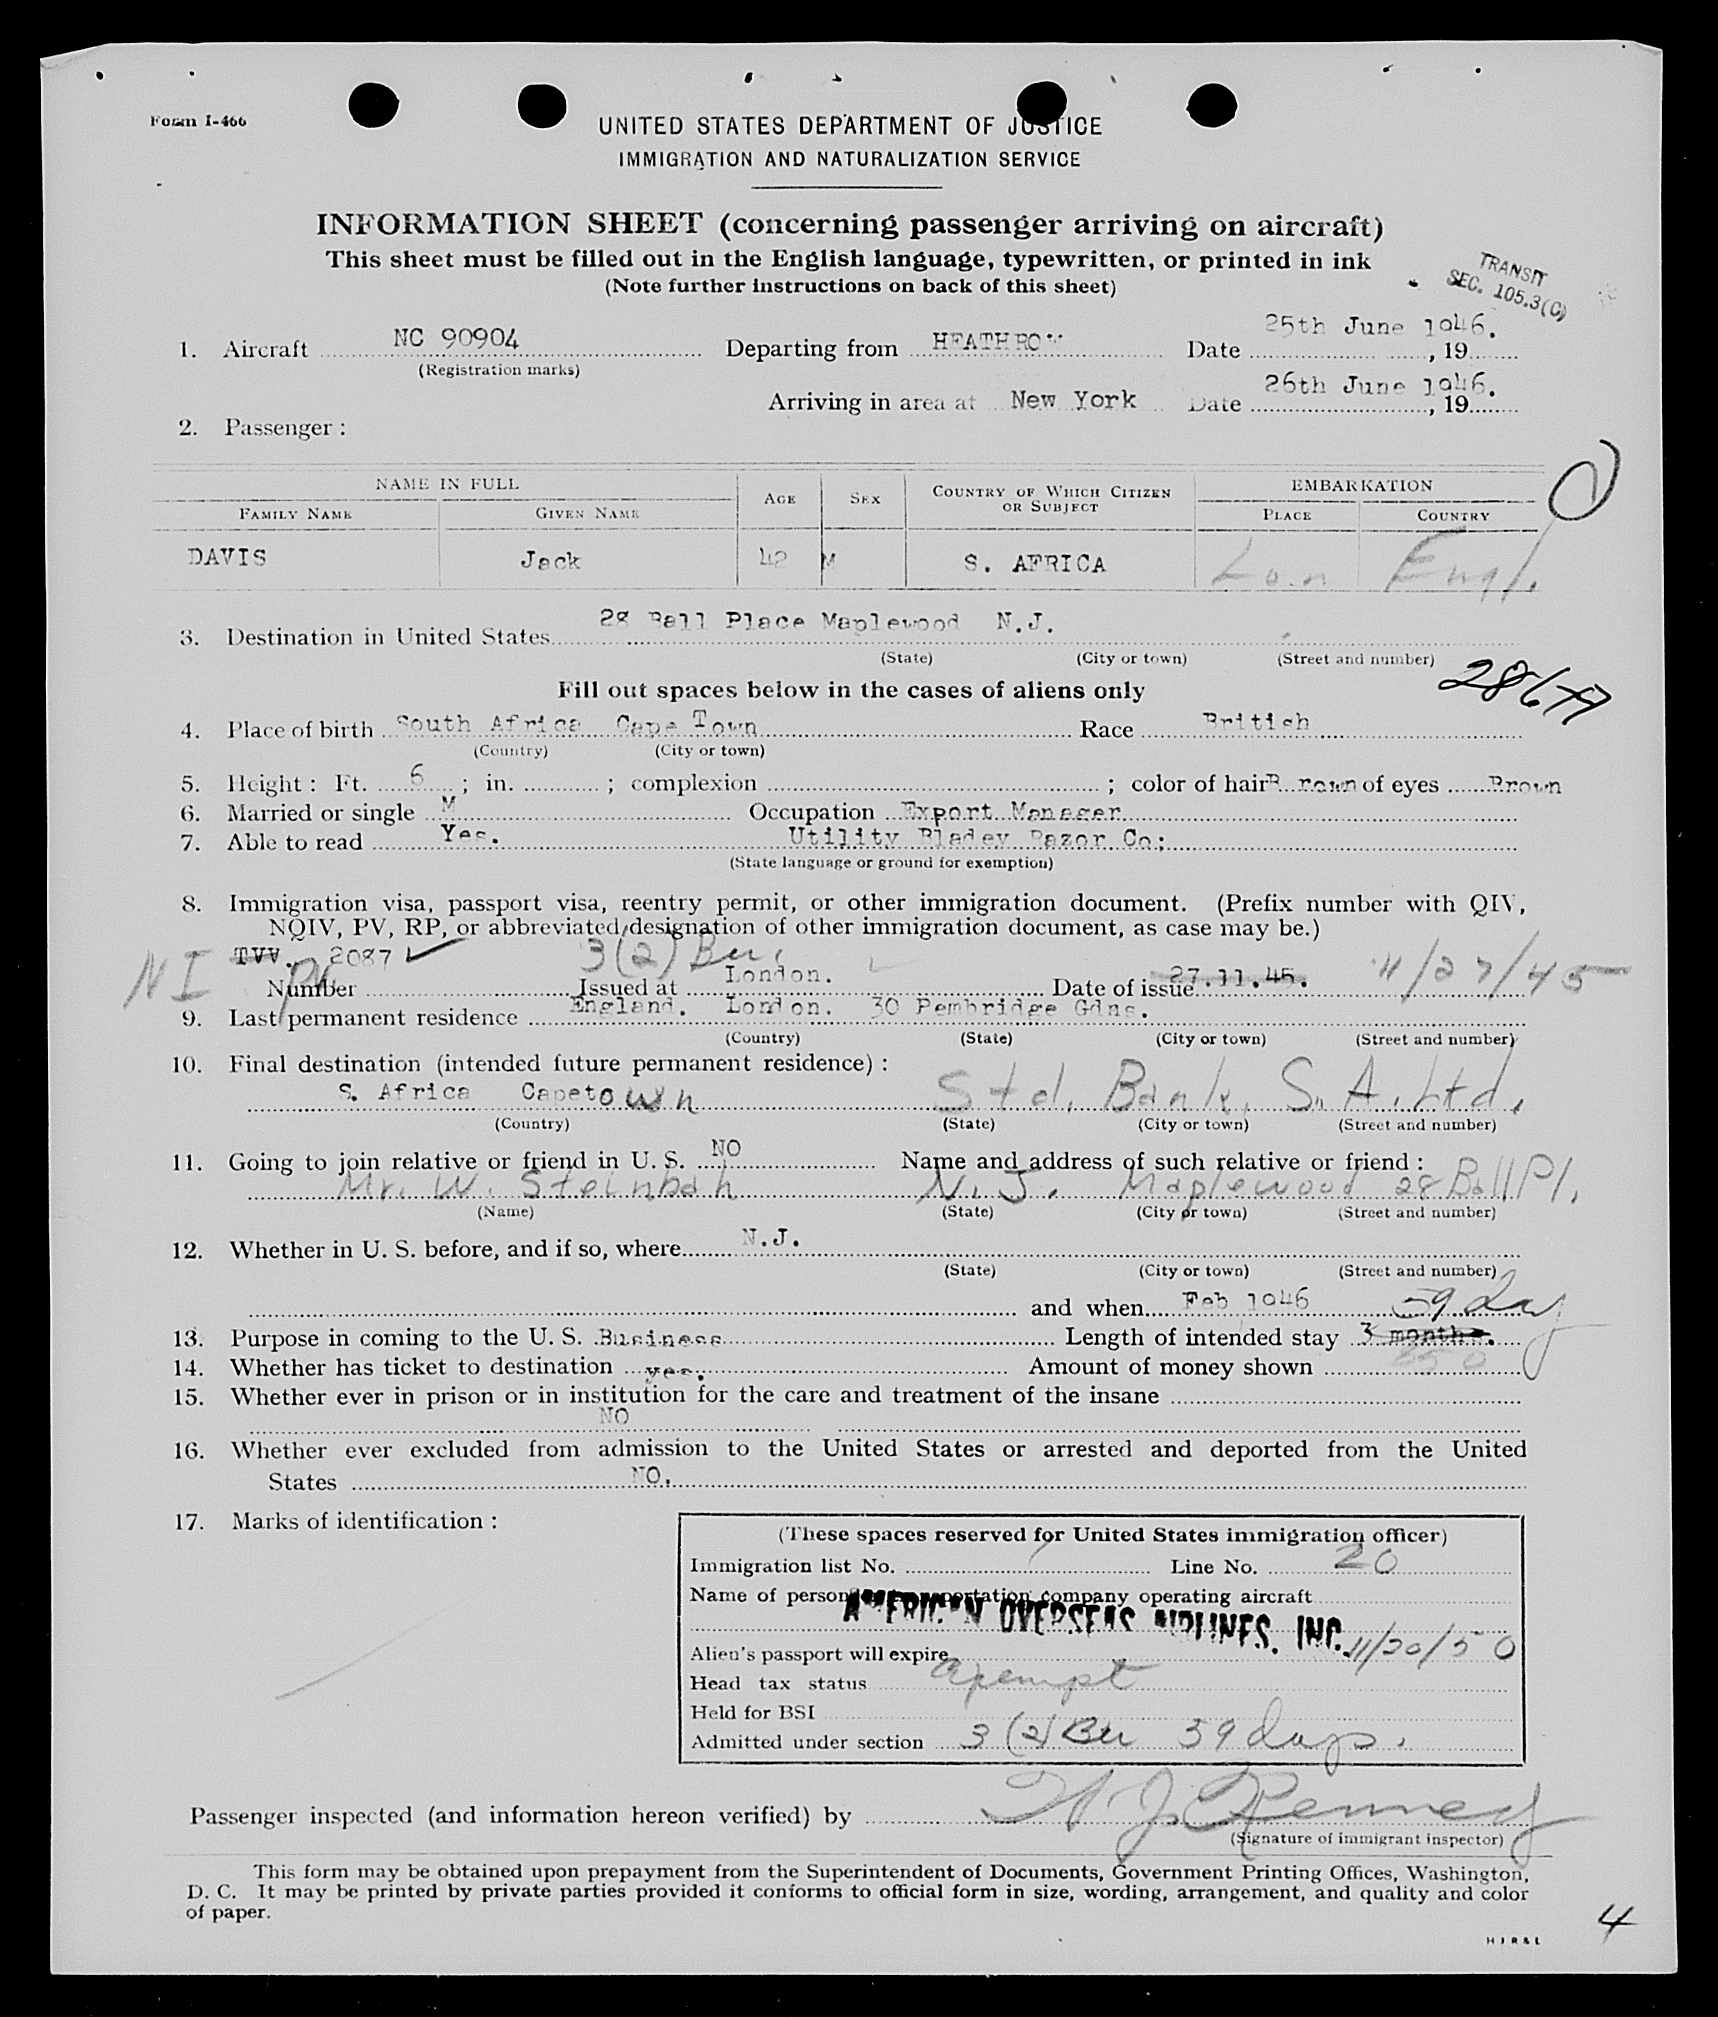 Form I-466
UNITED STATES DEPARTMENT OF JUSTICE
IMMIGRATION AND NATURALIZATION SERVICE
INFORMATION SHEET (concerning passenger arriving on aircraft)
This sheet must be filled out in the English language, typewritten, or printed in ink
(Note further instructions on back of this sheet)
TRANSIT
SEC. 105.3(C)
1. Aircraft NC 90904 Departing from HEATHROW Date 25th June 1946. , 19
(Registration marks)
Arriving in area at New York Date 26th June 1946. , 19
2. Passenger :
NAME IN FULL AGE SEX COUNTRY OF WHICH CITIZEN OR SUBJECT EMBARKATION
FAMILY NAME GIVEN NAME PLACE COUNTRY
DAVIS Jack 42 M S. AFRICA Lon Engl.
3. Destination in United States 28 Ball Place Maplewood N.J.
(State) (City or town) (Street and number)
Fill out spaces below in the cases of aliens only
4. Place of birth South Africa Cape Town Race British
(Country) (City or town)
5. Height : Ft. 6 ; in. ; complexion ; color of hair Brown of eyes Brown
6. Married or single M Occupation Export Manager
7. Able to read Yes. Utility Bladey Razor Co:
(State language or ground for exemption)
8. Immigration visa, passport visa, reentry permit, or other immigration document. (Prefix number with QIV,
NQIV, PV, RP, or abbreviated designation of other immigration document, as case may be.)
NI TVV. PV 2087 3(2) Ber.
Number Issued at London. Date of issue 27.11.45. 11/27/45
9. Last permanent residence England. London. 30 Pembridge Gdns.
(Country) (State) (City or town) (Street and number)
10. Final destination (intended future permanent residence) :
S. Africa Capetown Std. Bank, S. A. Ltd.
(Country) (State) (City or town) (Street and number)
11. Going to join relative or friend in U. S. NO Name and address of such relative or friend :
Mr. W. Steinbah N. J. Maplewood 28 Ball Pl.
(Name) (State) (City or town) (Street and number)
12. Whether in U. S. before, and if so, where N.J.
(State) (City or town) (Street and number)
and when Feb 1946 59 day
13. Purpose in coming to the U. S. Business Length of intended stay 3 months.
14. Whether has ticket to destination yes. Amount of money shown
15. Whether ever in prison or in institution for the care and treatment of the insane
NO
16. Whether ever excluded from admission to the United States or arrested and deported from the United
States NO.
17. Marks of identification :
(These spaces reserved for United States immigration officer)
Immigration list No. Line No. 20
Name of person or transportation company operating aircraft
AMERICAN OVERSEAS AIRLINES, INC.
Alien's passport will expire 11/20/50
Head tax status exempt
Held for BSI
Admitted under section 3(2) Ber 59 days.
Passenger inspected (and information hereon verified) by
(Signature of immigrant inspector)
This form may be obtained upon prepayment from the Superintendent of Documents, Government Printing Offices, Washington,
D. C. It may be printed by private parties provided it conforms to official form in size, wording, arrangement, and quality and color
of paper.
4